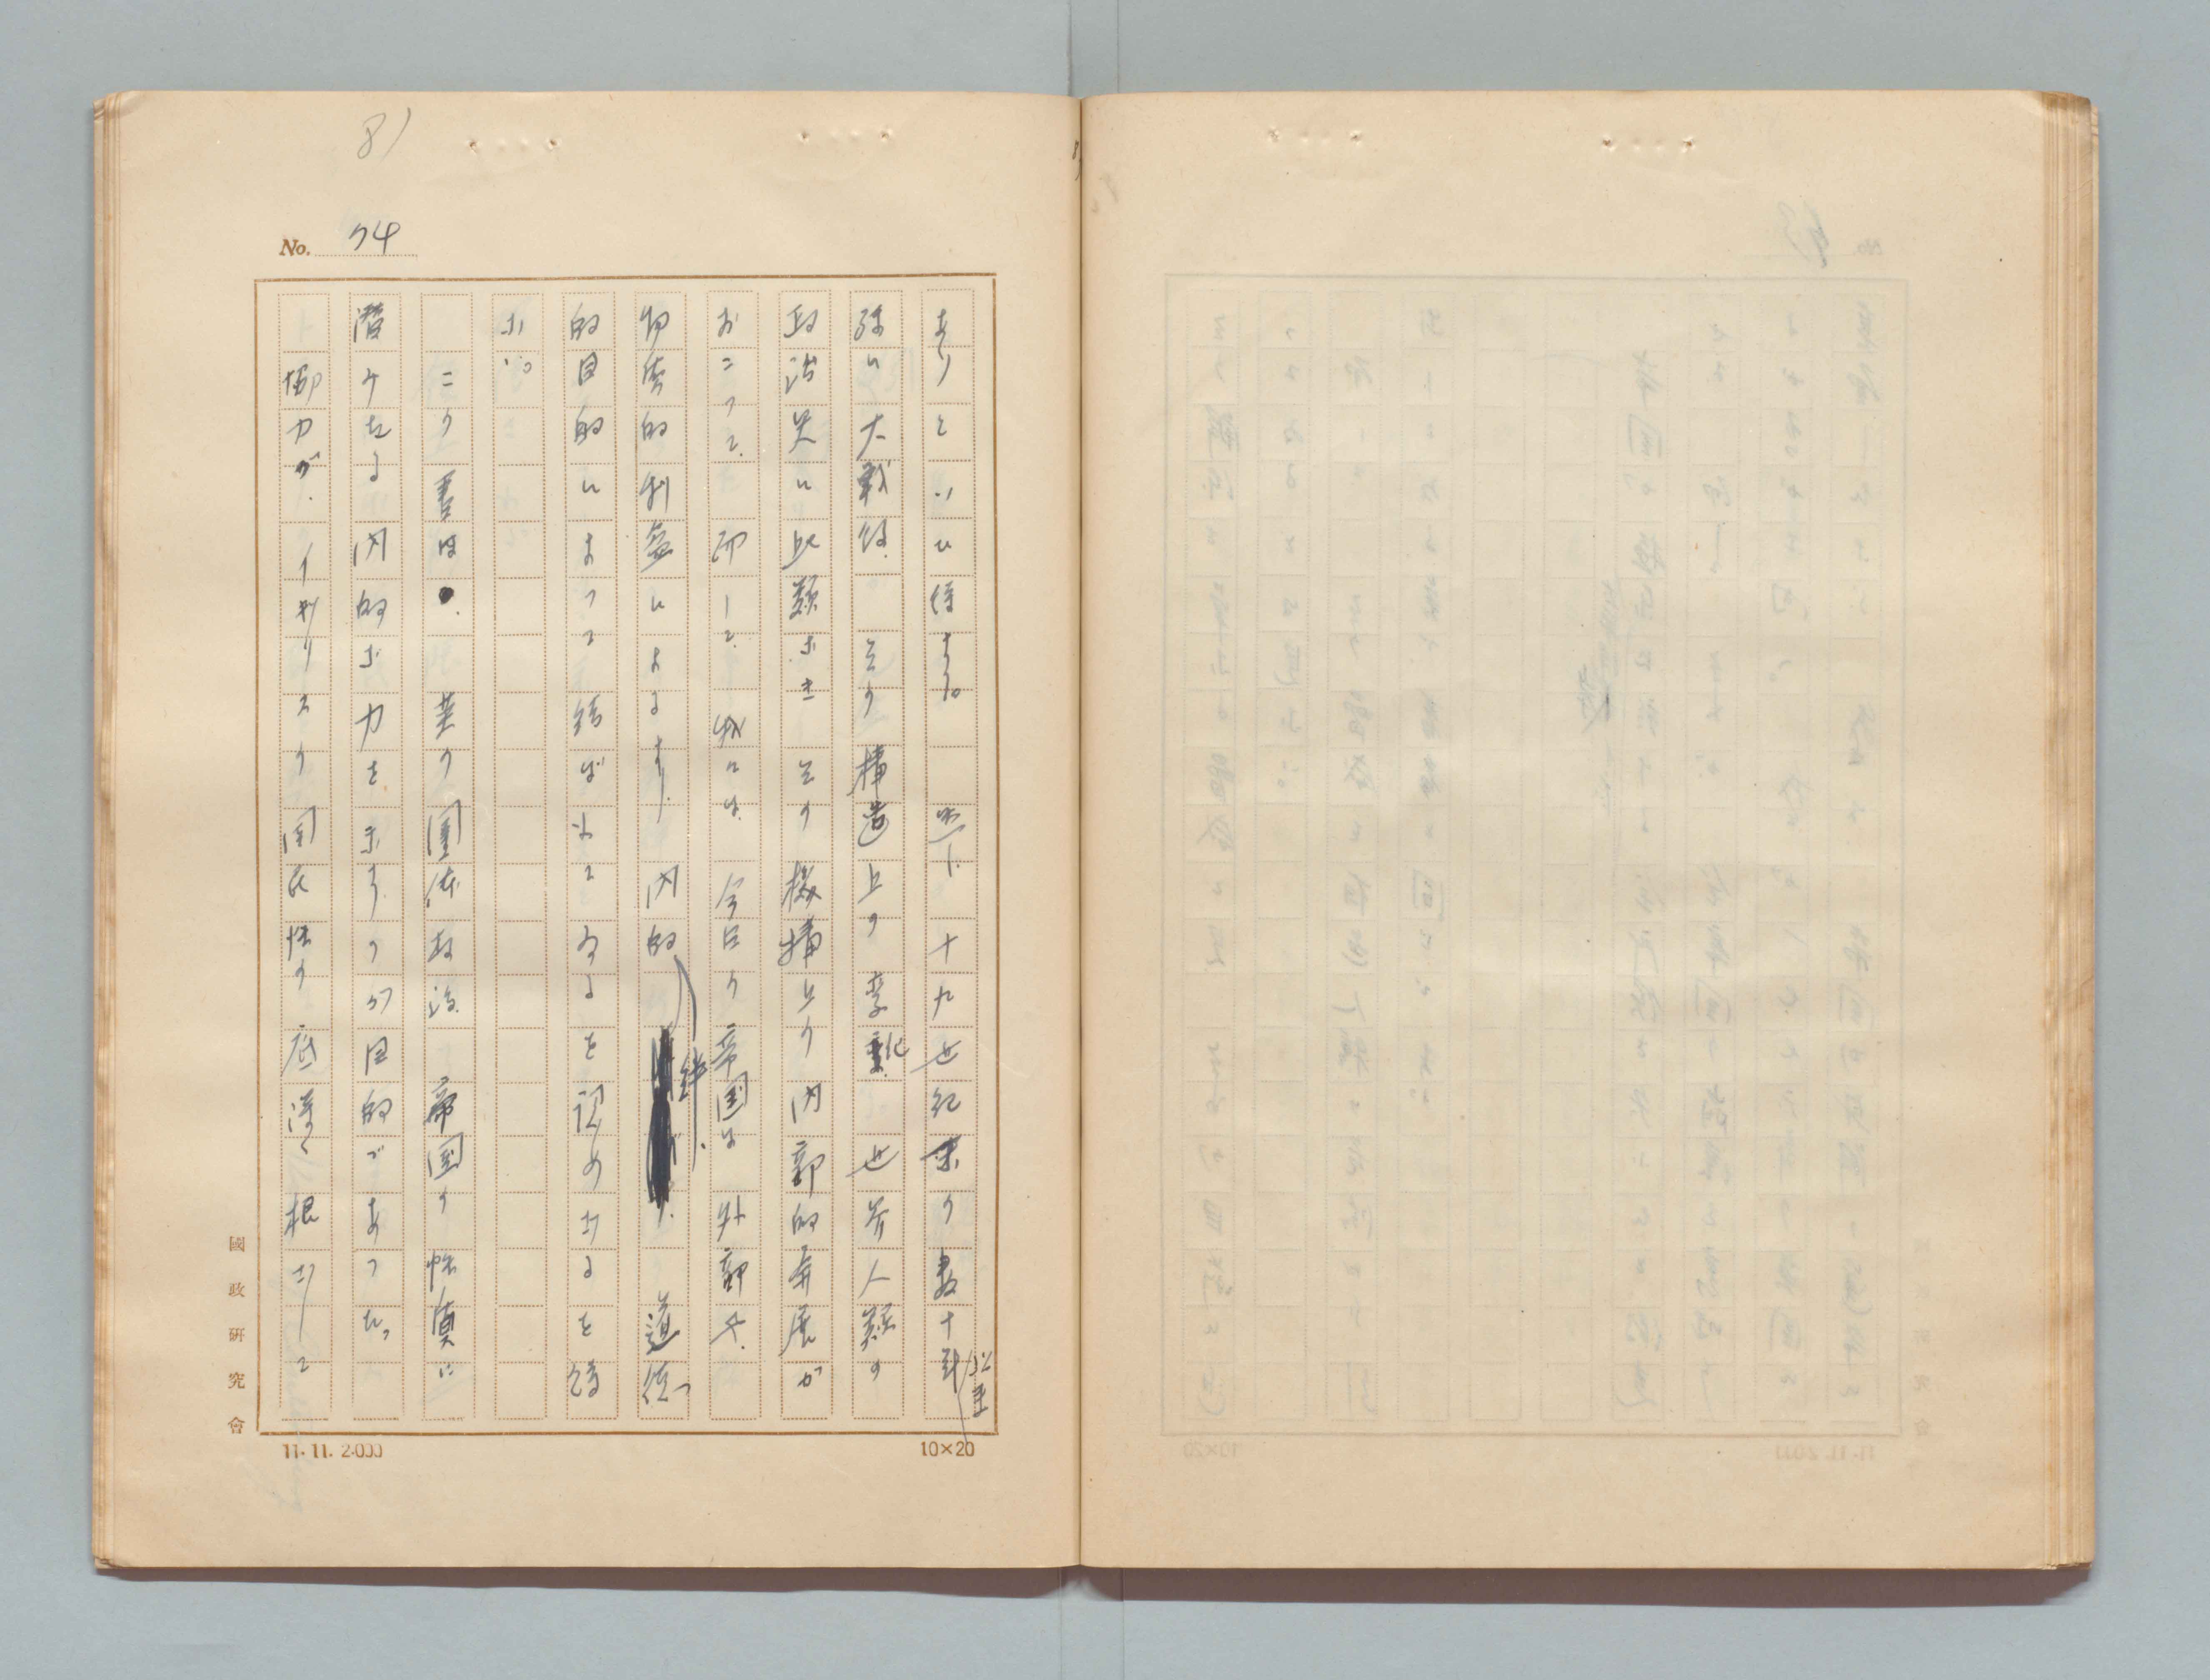 8)
No. 74
ありといひ得よう。 然し、十九世紀末の数十年以来
殊に大戦後、 その構造上の 變化、 世界人類の
政治史に比類なき その機構上の 内部的発展が
おこつて、 而して、 今日の帝国は 外部や、
物質的利益によるより、 内的絆、 道徳
的目的によつて結ばれてゐるを認めざるを得
ない。
この書は、 英の團体政治、 帝国の性質に
潜みたる内的な力を示すのが目的であつた。
力が、イギリスの国民性の底深く根ざして
國政研究會
11. 11. 2.000
10×20